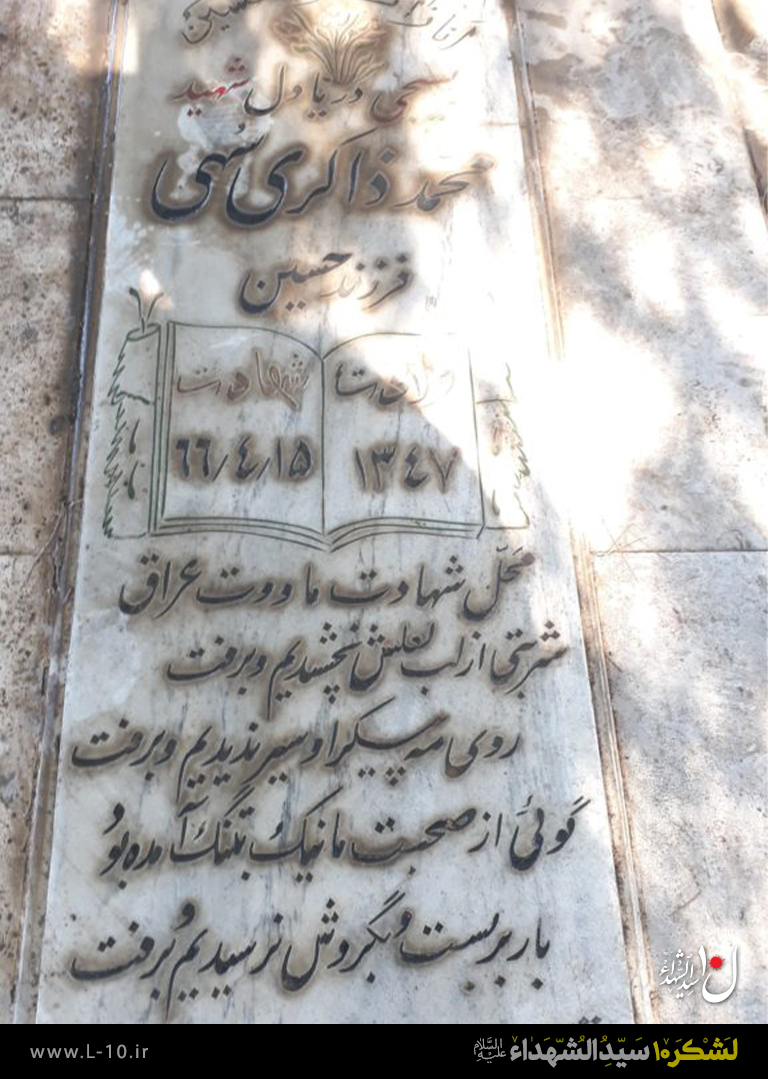 بسیجی دریا دل شهید
محمد ذاکری سهی
فرزند حسین
ولادت شهادت
۱۳۴۷ ۶۶/۴/۱۵
محلّ شهادت ماووت عراق
شربتی از لب لعلش نچشیدیم و برفت
روی مه پیکر او سیر ندیدیم و برفت
گوئی از صحبت ما نیک بتنگ آمده بود
بار بربست و بگردش نرسیدیم و برفت
لشکر۱۰ سیّدالشهداء علیه‌السلام
www.L-10.ir